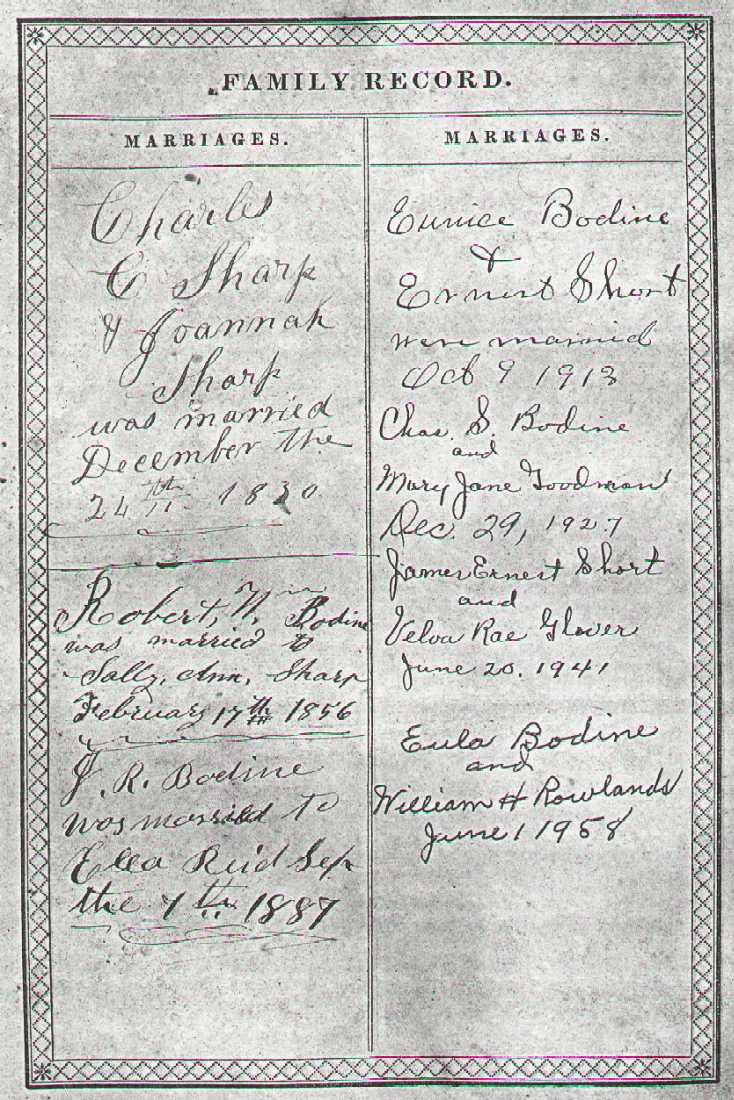 FAMILY RECORD.
MARRIAGES.
Charles
C Sharp
& Joannah
Sharp
was married
December the
24th 1830
Robert, Wm Bodine
was married to
Sally, Ann, Sharp
February 17th 1856
J. R. Bodine
was married to
Ella Reid Sep
the 7th 1887
MARRIAGES.
Eunice Bodine
&
Ernest Short
were married
Oct 9 1913
Chas. S. Bodine
and
Mary Jane Goodman
Dec. 29, 1927
James Ernest Short
and
Velva Rae Glover
June 20. 1941
Eula Bodine
and
William H Rowlands
June 1 1958